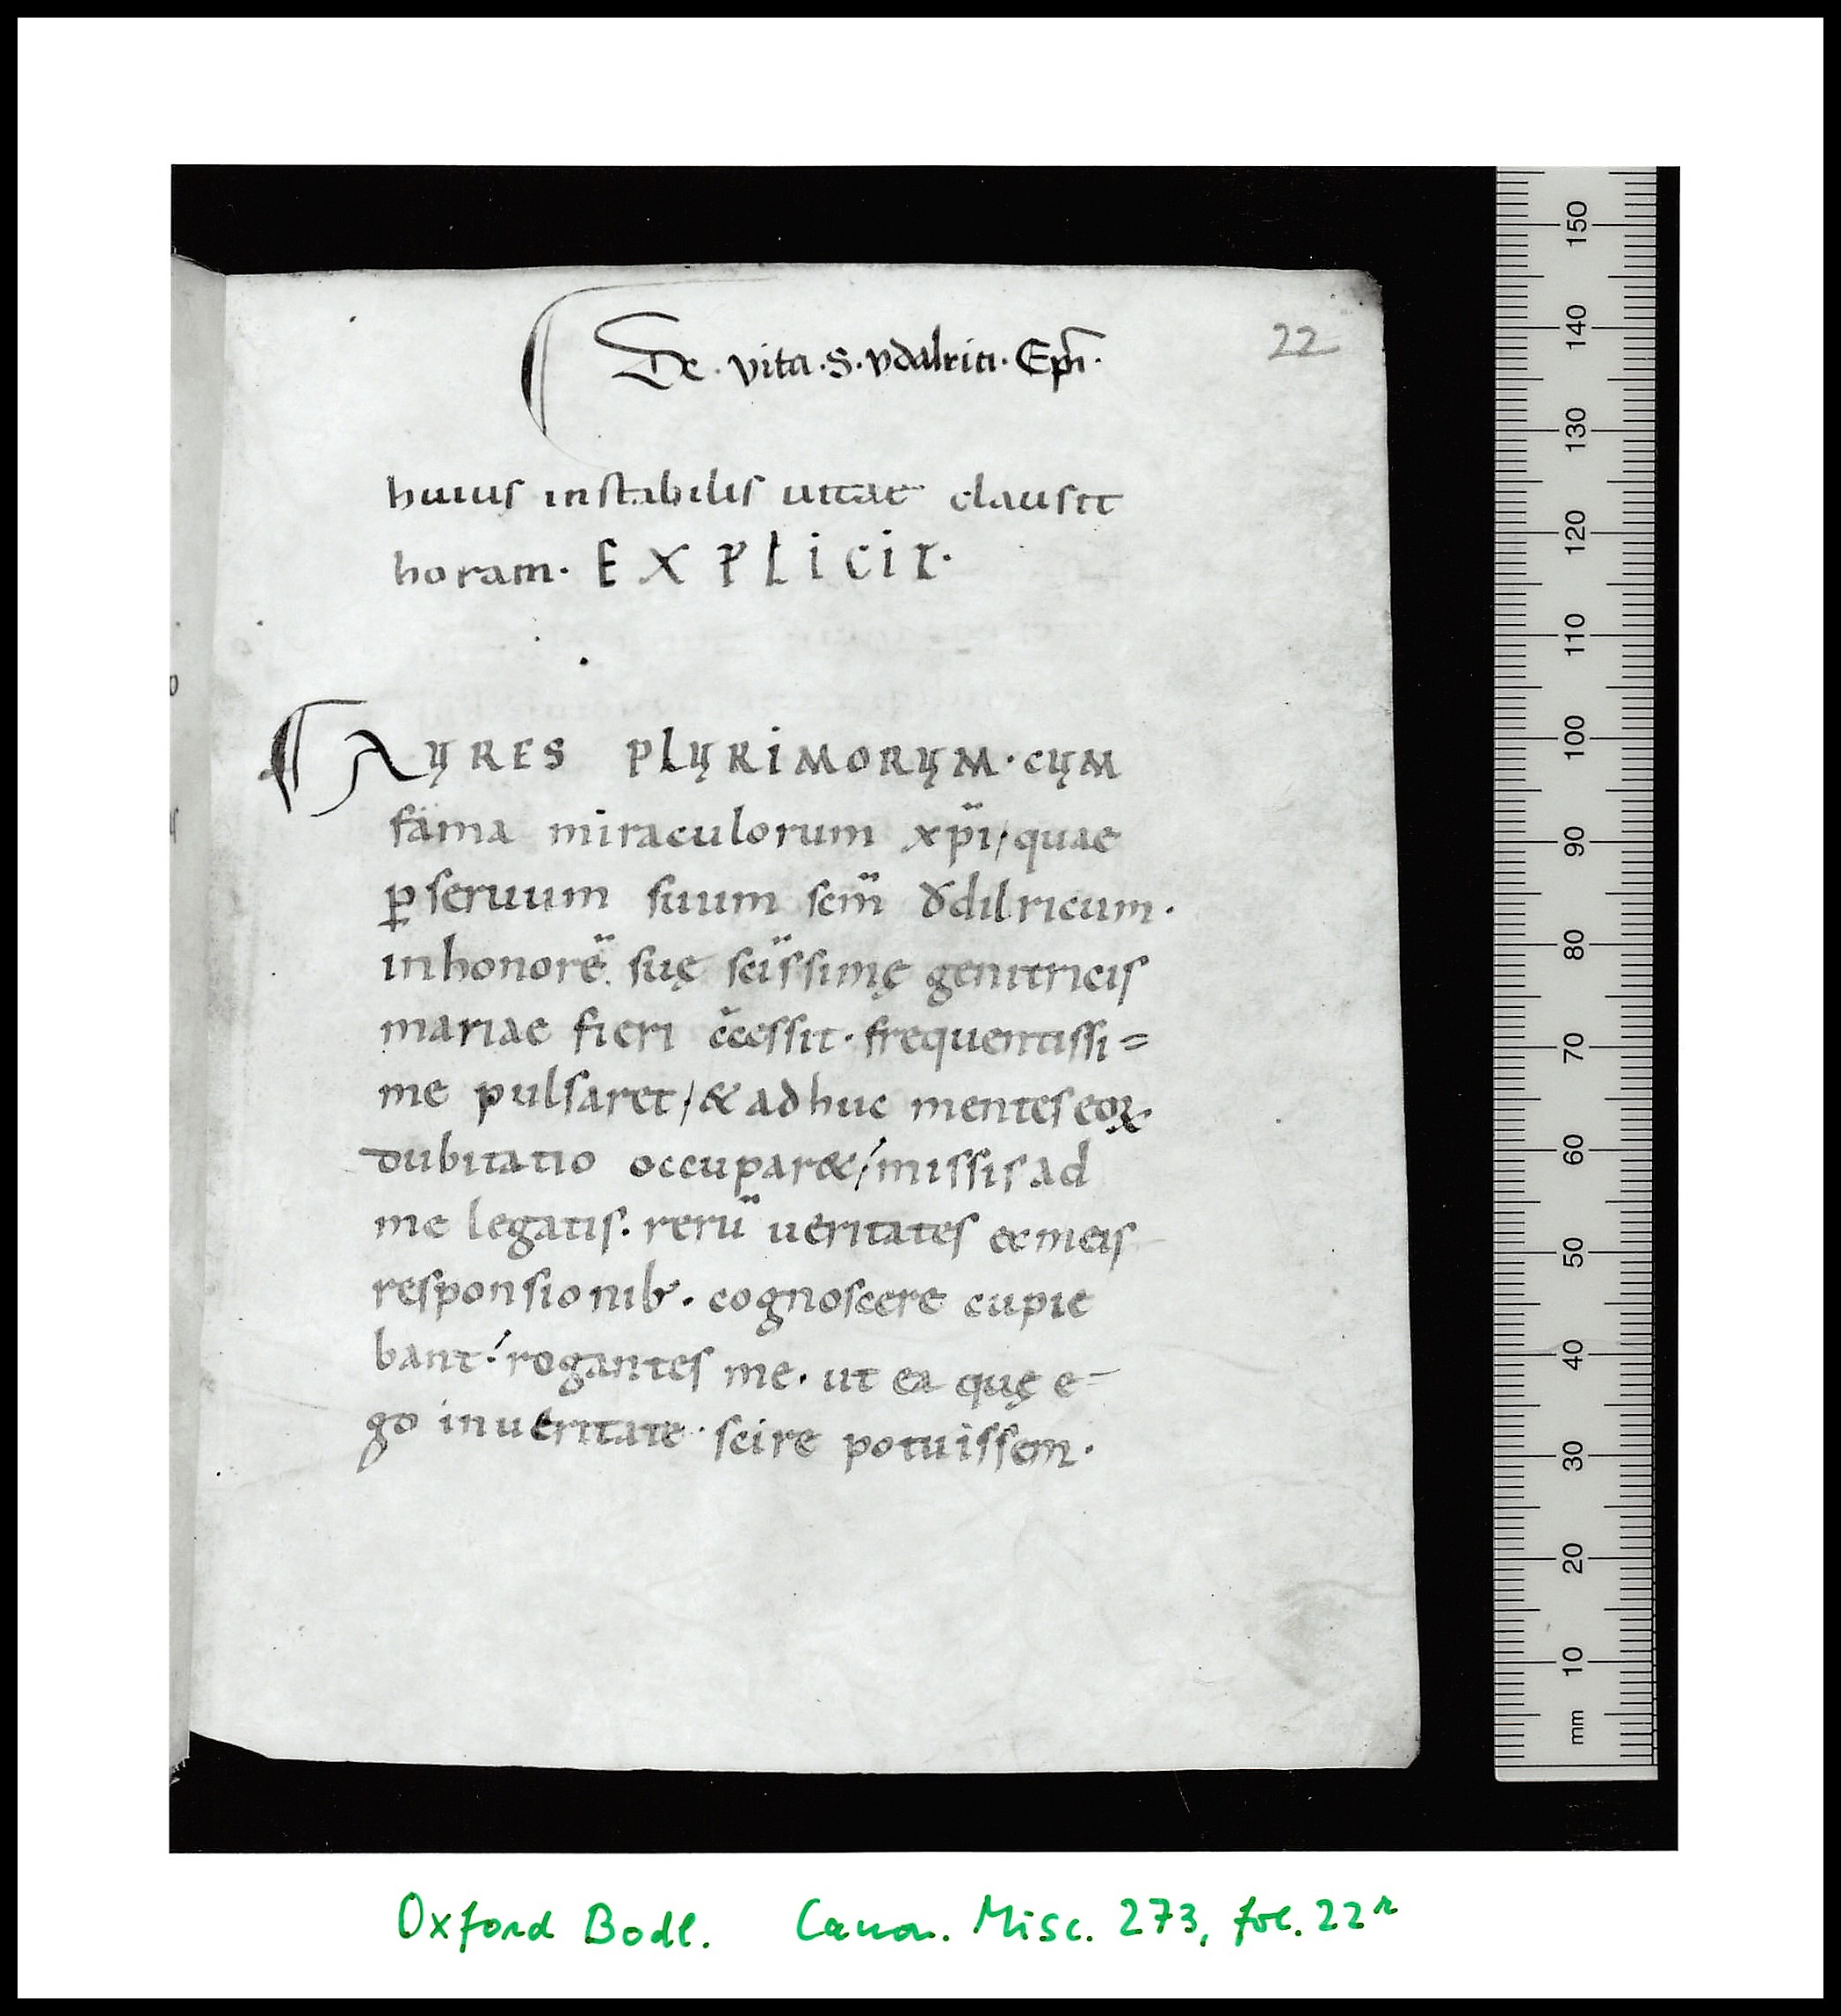 De . vita . S. vdalrici . Ep̄i .
22
huius instabilis uitae clausit
horam · EXPLICIT ·
AURES PLURIMORUM · CUM
fama miraculorum xp̄i, quae
ꝑ seruum suum scm̄ Ódilricum ·
in honorē. suę scīssimę genitricis
mariae fieri c̄cessit · frequentissi=
me pulsaret, & adhuc mentes eoꝝ ·
dubitatio occupar&, missis ad
me legatis · rerū ueritates ex meis
responsionib; · cognoscere cupie
bant · rogantes me · ut ea quę e-
go in ueritate · scire potuissem ·
150
140
130
120
110
100
90
80
70
60
50
40
30
20
10
mm
Oxford Bodl. Canon. Misc. 273, fol. 22r